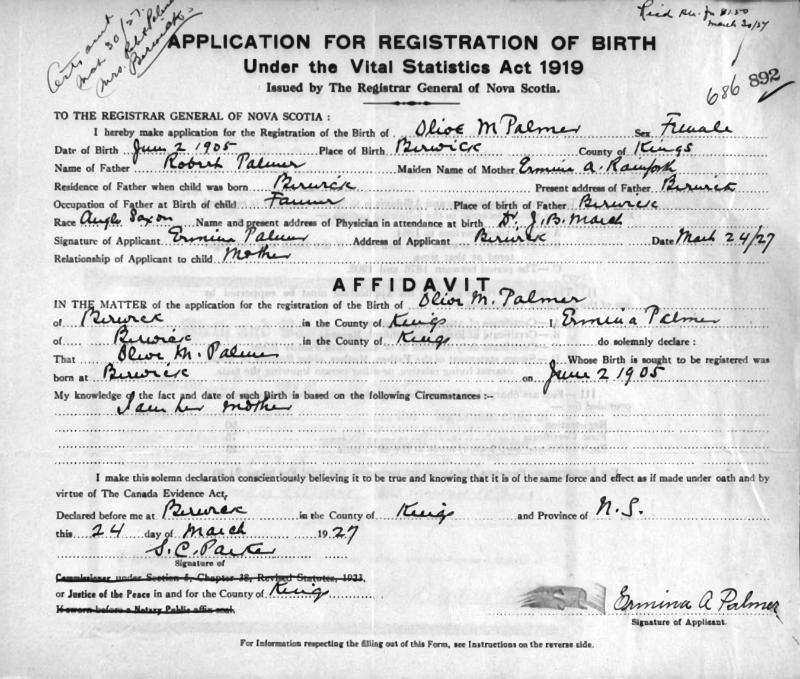 Certs sent
Mar 30/27.
Mrs. Palmer
Berwick
Recd $1.50
March 30/27
APPLICATION FOR REGISTRATION OF BIRTH
Under the Vital Statistics Act 1919
Issued by The Registrar General of Nova Scotia.
686 892
TO THE REGISTRAR GENERAL OF NOVA SCOTIA :
I hereby make application for the Registration of the Birth of Olive M Palmer Sex Female
Date of Birth June 2 1905 Place of Birth Berwick County of Kings
Name of Father Robert Palmer Maiden Name of Mother Ermina A. Rainforth
Residence of Father when child was born Berwick Present address of Father Berwick
Occupation of Father at Birth of child Farmer Place of birth of Father Berwick
Race Anglo Saxon Name and present address of Physician in attendance at birth Dr. J. B. March
Signature of Applicant Ermina Palmer Address of Applicant Berwick Date March 24/27
Relationship of Applicant to child Mother
AFFIDAVIT
IN THE MATTER of the application for the registration of the Birth of Olive M. Palmer
of Berwick in the County of Kings I, Ermina Palmer
of Berwick in the County of Kings do solemnly declare :
That Olive M. Palmer Whose Birth is sought to be registered was
born at Berwick on June 2 1905
My knowledge of the fact and date of such Birth is based on the following Circumstances :--
I am her mother
I make this solemn declaration conscientiously believing it to be true and knowing that it is of the same force and effect as if made under oath and by
virtue of The Canada Evidence Act,
Declared before me at Berwick in the County of Kings and Province of N.S.
this 24 day of March 1927
S. C. Parker
Signature of
Commissioner under Section 5, Chapter 38, Revised Statutes, 1923,
or Justice of the Peace in and for the County of Kings
If sworn before a Notary Public affix seal.
Ermina A Palmer
Signature of Applicant.
For Information respecting the filling out of this Form, see Instructions on the reverse side.